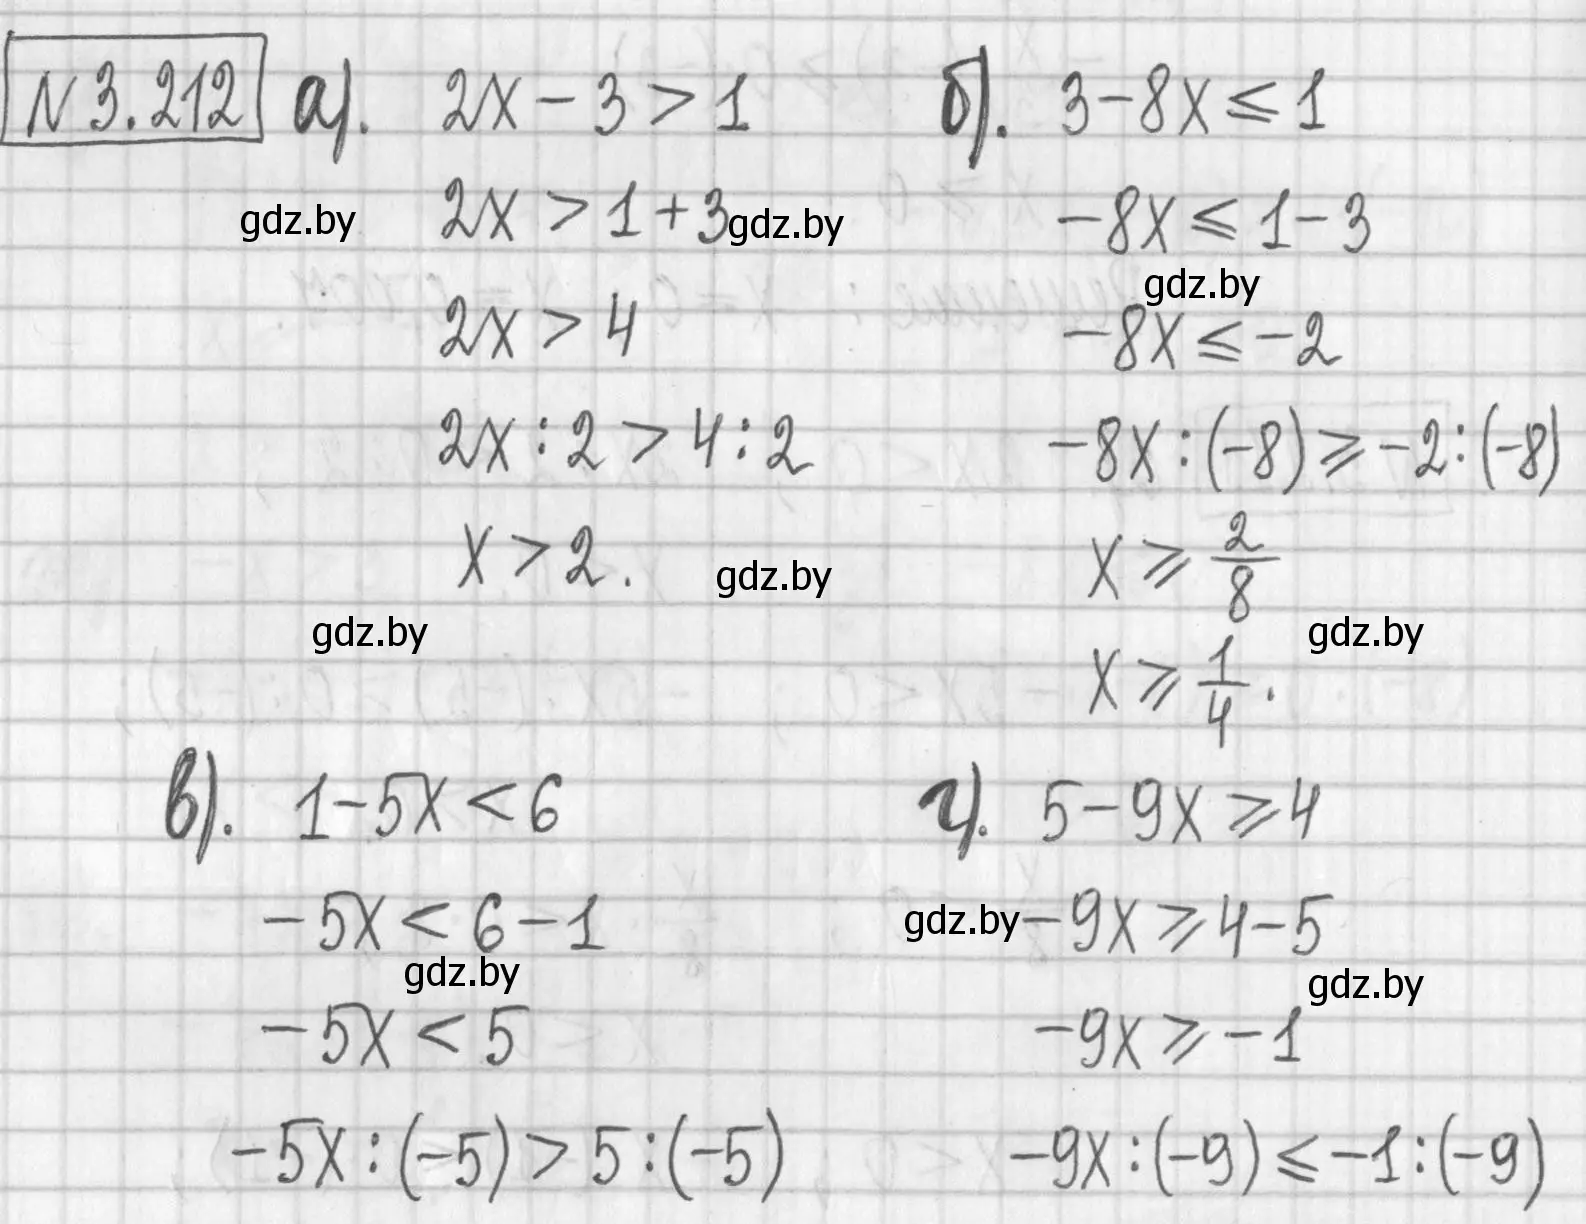 N 3.212 а). 2x - 3 > 1
2x > 1 + 3
2x > 4
2x : 2 > 4 : 2
x > 2.
б). 3 - 8x ⩽ 1
-8x ⩽ 1 - 3
-8x ⩽ -2
-8x : (-8) ⩾ -2 : (-8)
x ⩾ 2/8
x ⩾ 1/4.
в). 1 - 5x < 6
-5x < 6 - 1
-5x < 5
-5x : (-5) > 5 : (-5)
г). 5 - 9x ⩾ 4
-9x ⩾ 4 - 5
-9x ⩾ -1
-9x : (-9) ⩽ -1 : (-9)
gdz.by
gdz.by
gdz.by
gdz.by
gdz.by
gdz.by
gdz.by
gdz.by
gdz.by